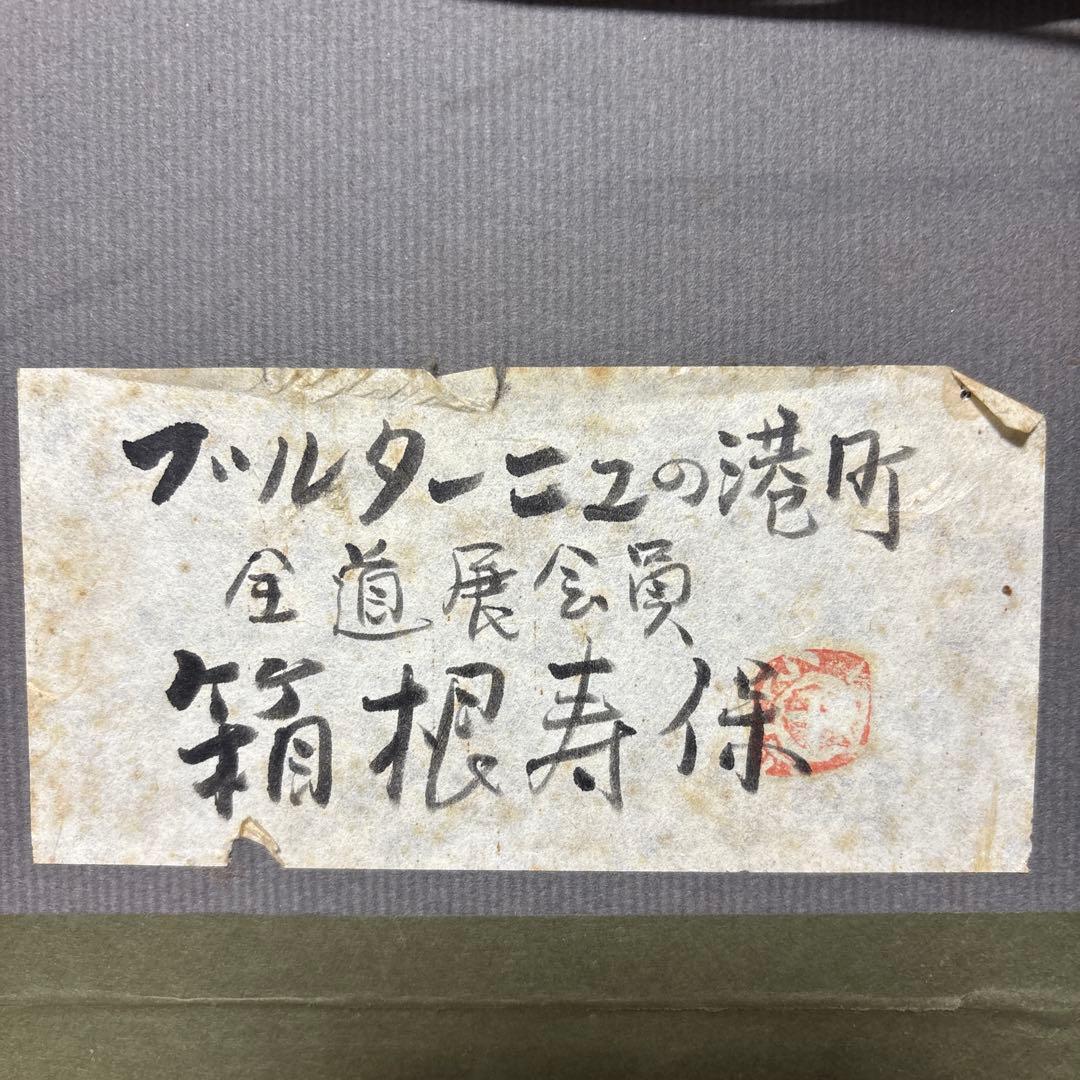 ブルターニュの港町
全道展会員
箱根寿保